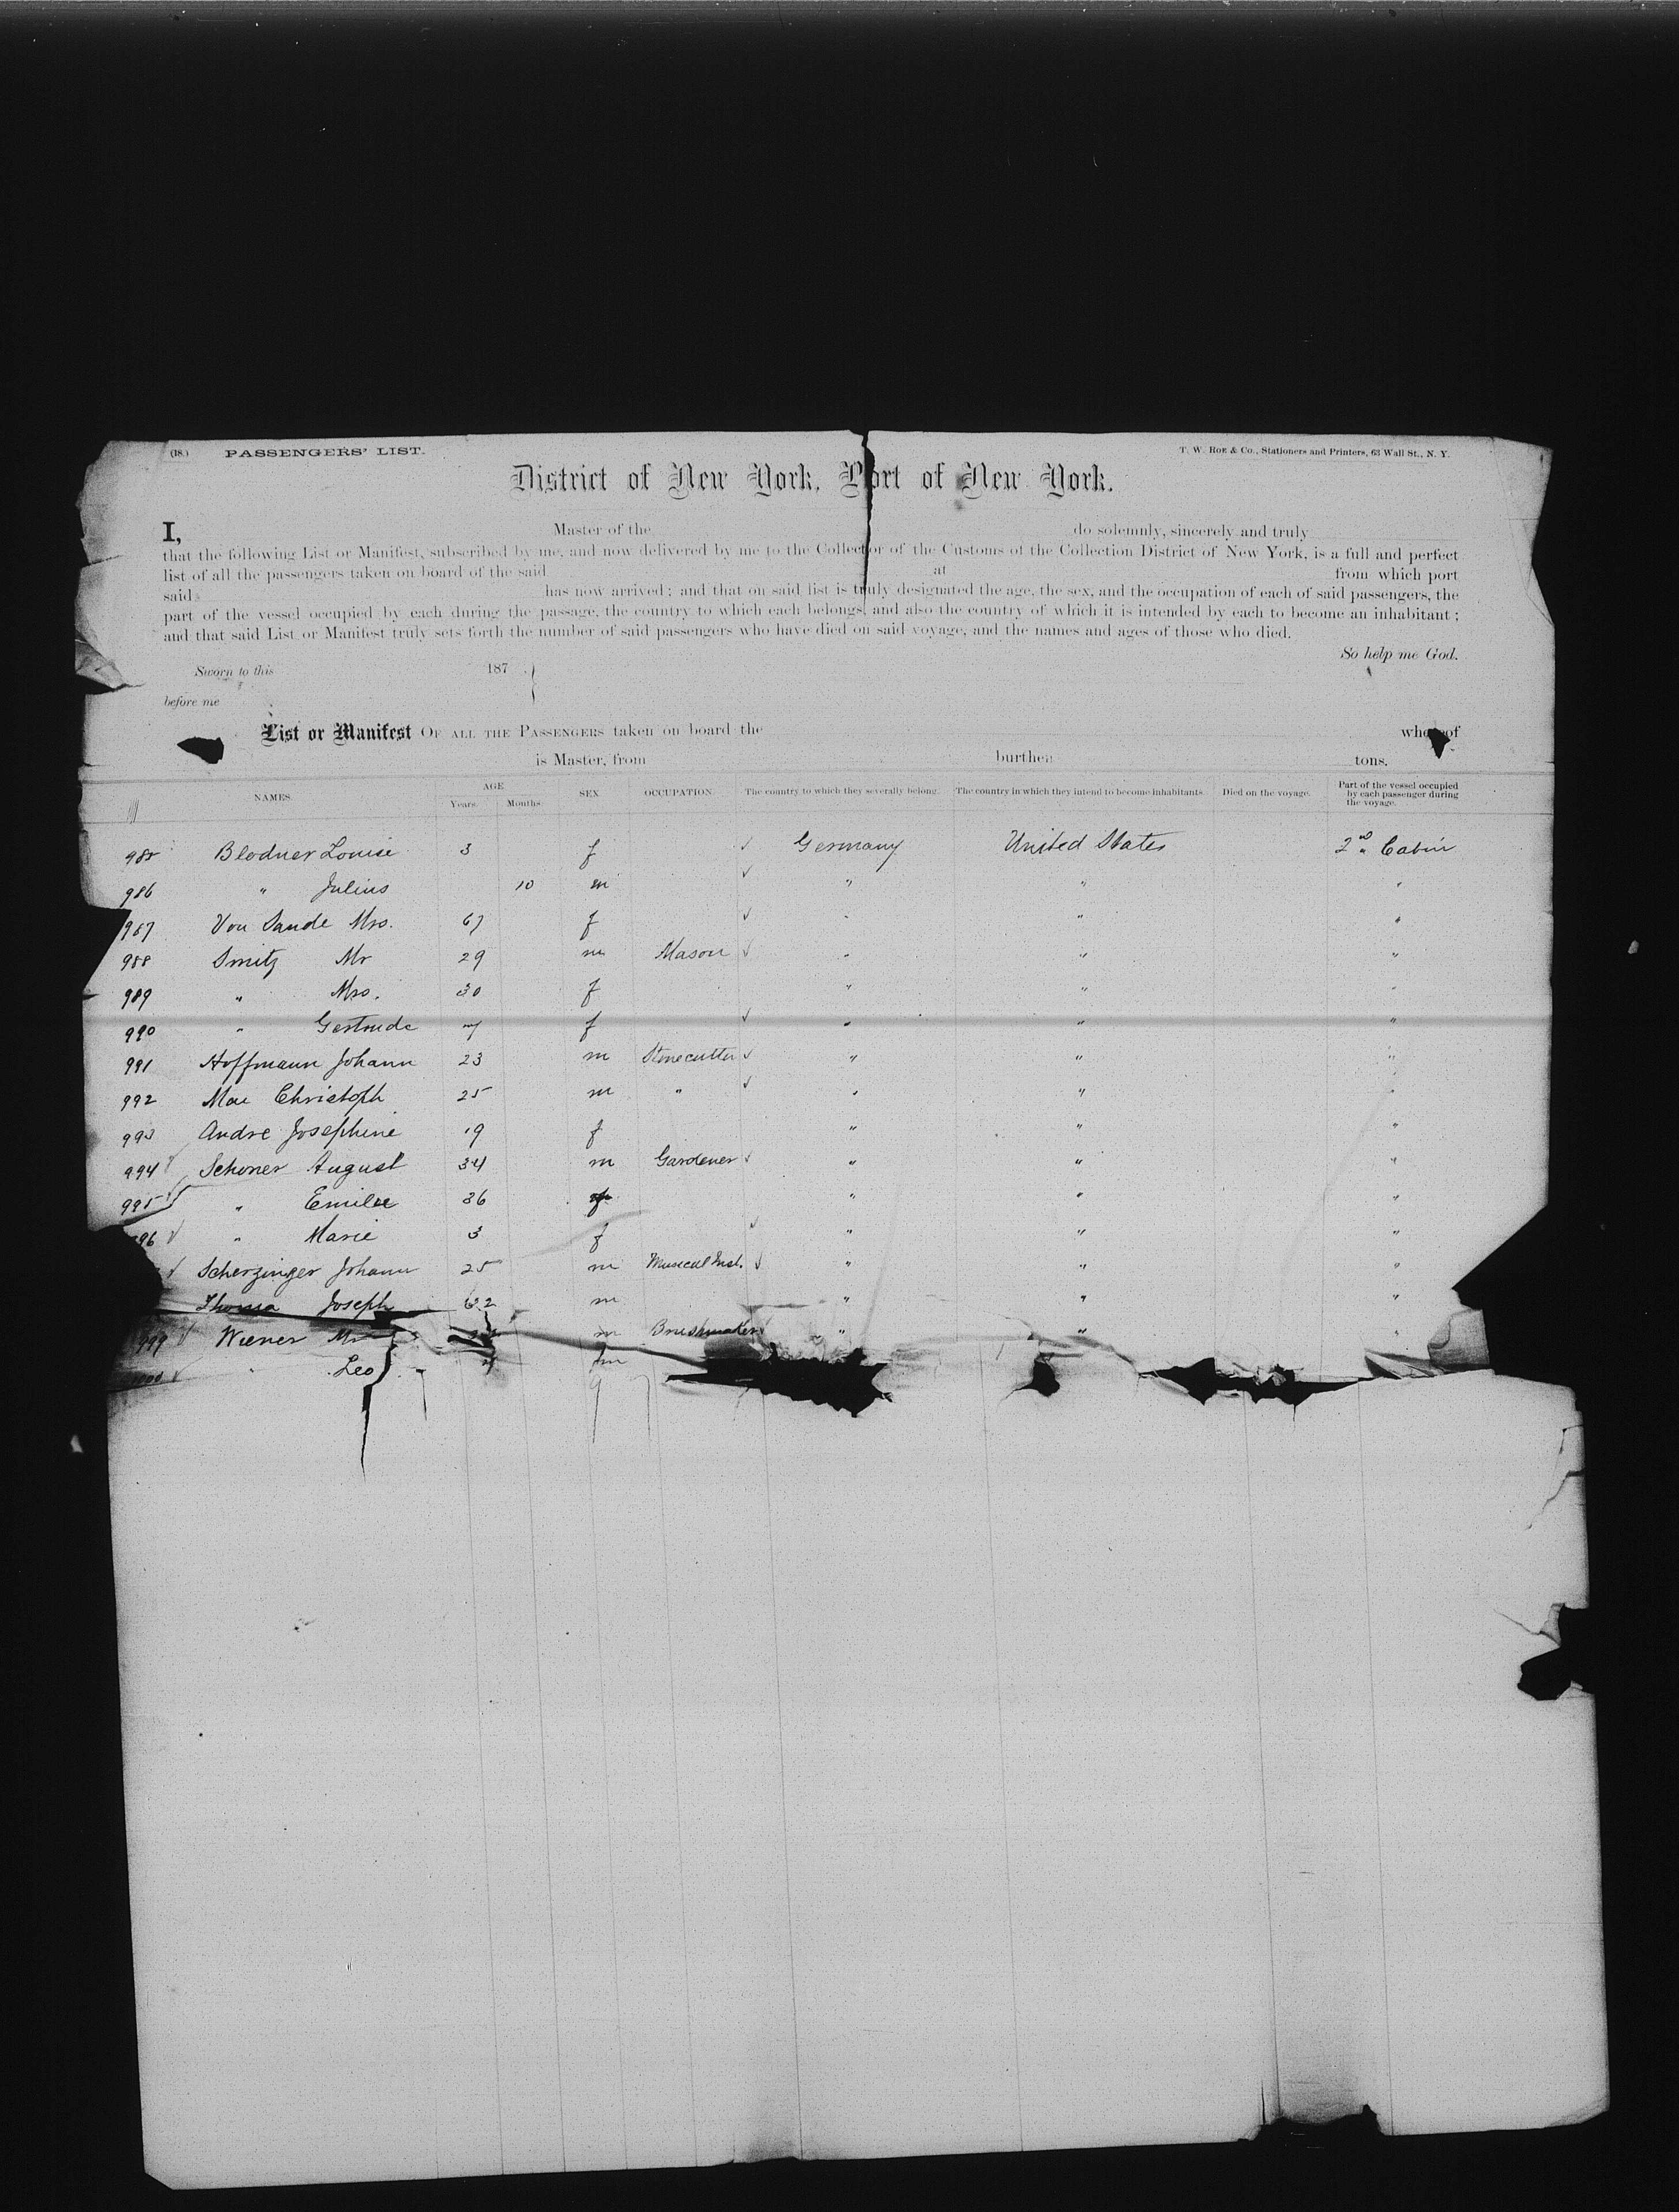 (18.) PASSENGERS' LIST. T. W. Roe & Co., Stationers and Printers, 63 Wall St., N. Y.
District of New York, Port of New York.
I, Master of the do solemnly, sincerely and truly
that the following List or Manifest, subscribed by me, and now delivered by me to the Collector of the Customs of the Collection District of New York, is a full and perfect
list of all the passengers taken on board of the said at from which port
said has now arrived; and that on said list is truly designated the age, the sex, and the occupation of each of said passengers, the
part of the vessel occupied by each during the passage, the country to which each belongs, and also the country of which it is intended by each to become an inhabitant;
and that said List or Manifest truly sets forth the number of said passengers who have died on said voyage, and the names and ages of those who died.
So help me God.
Sworn to this 187
before me
List or Manifest Of all the Passengers taken on board the whereof
is Master, from burthen tons.
NAMES. AGE Years. Months. SEX. OCCUPATION. The country to which they severally belong. The country in which they intend to become inhabitants. Died on the voyage. Part of the vessel occupied by each passenger during the voyage.
985 Blodner Louise 3 f Germany United States 2nd Cabin
986 " Julius 10 m " " "
987 Von Sande Mrs. 67 f " " "
988 Smitz Mr 29 m Mason " " "
989 " Mrs. 30 f " " "
990 " Gertrude f " " "
991 Hoffmann Johann 23 m Stonecutter " " "
992 Mau Christoph 25 m " " " "
993 Andre Josephine 19 f " " "
994 Schoner August 34 m Gardener " " "
995 " Emilie 36 f " " "
96 " Marie 3 f " " "
Scherzinger Johann 25 m Musical Inst. " " "
Thoma Joseph m " " "
999 Wiener Mr m Brushmaker " " "
1000 " Leo m